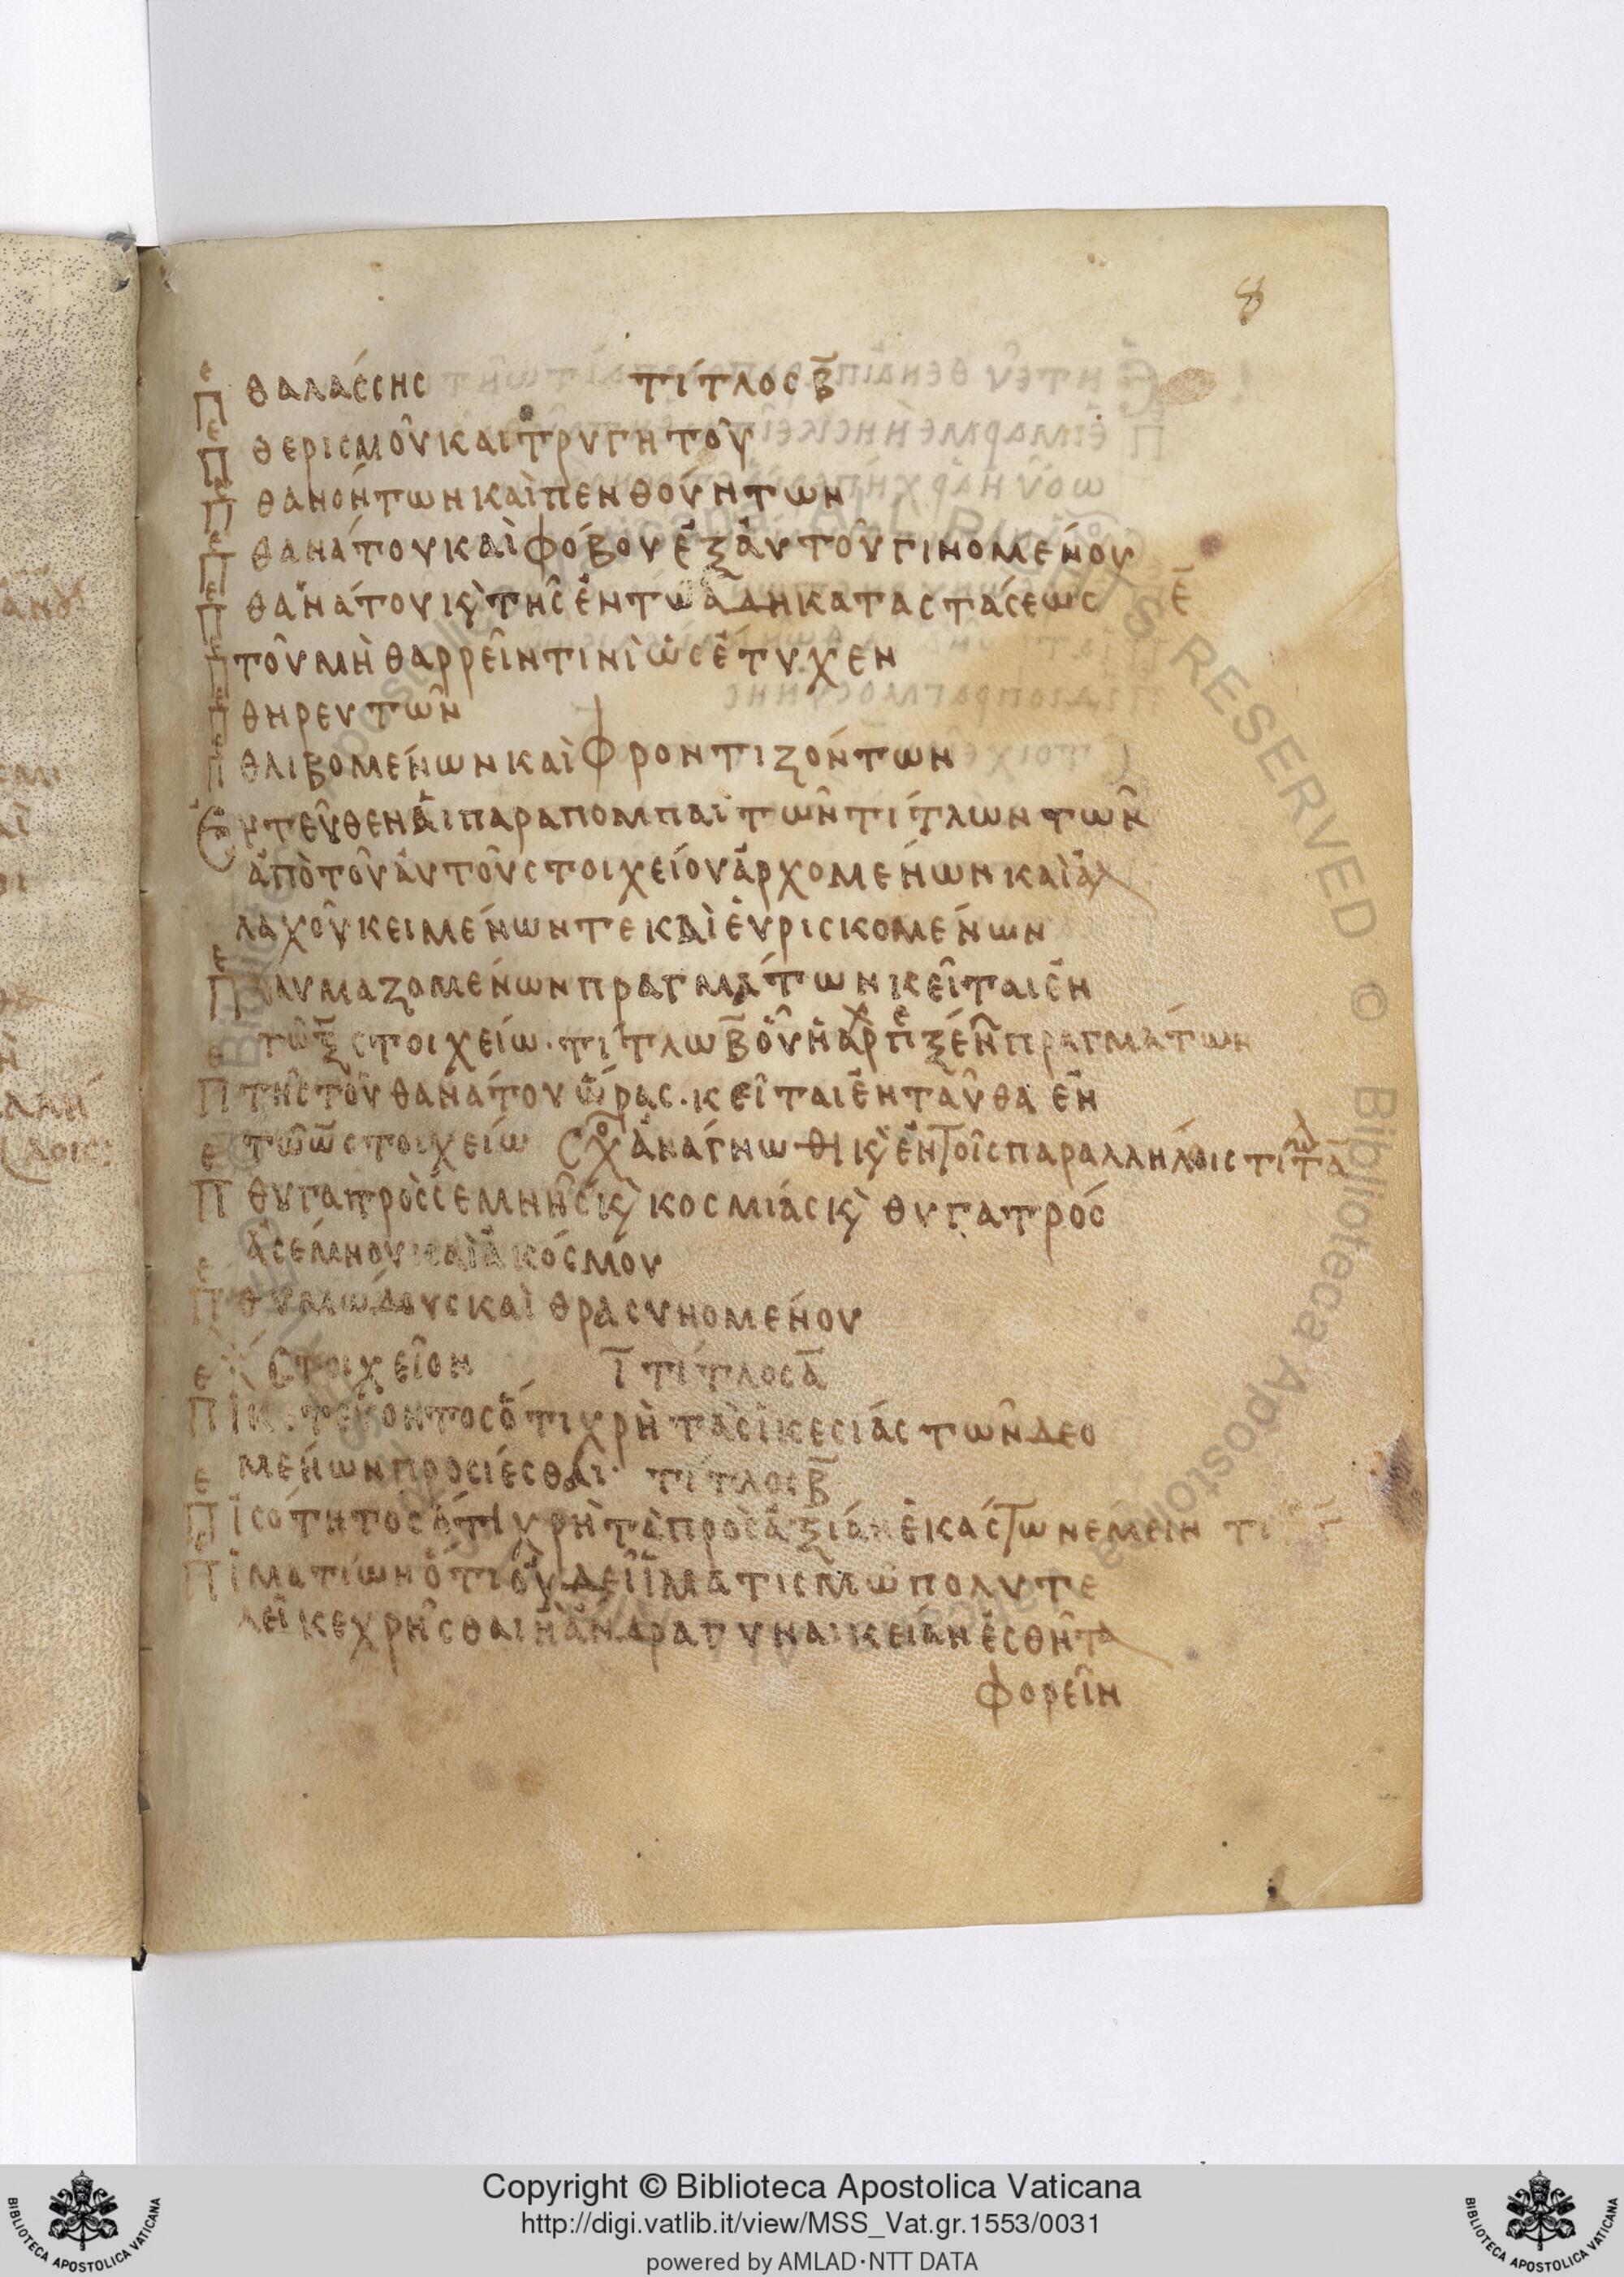 8
Πε θαλάσσης τίτλος β̅
Πε θερισμοῦ και τρυγητοῦ
Πε θανόντων καὶ πενθούντων
Πε θανάτου καὶ φόβου ἐξ ἀυτοῦ γινομένου
Πε θανάτου κ̀ τῆς ἐν τῶ ἄδη καταστάσεως ε̅
Πε τοῦ μὴ θαρρεῖν τινὶ ὡς ἔτυχεν
Πε θηρευτῶν
Πε θλιβομένων καὶ φροντιζόντων
Ἐντεῦθεν ἁι παραπομπαὶ τῶν τίτλων τῶν
ἀπὸ τοῦ ἀυτοῦ στοιχείου ἀρχομένων καὶ ἀλ
λαχοῦ κειμένων τε καὶ ἑυρισκομένων
Πε θαυμαζομένων πραγμάτων κεῖται ἐν
τῶ ξ̅ στοιχείω· τίτλω β̅ ὁῦ ἡ ἀρχ πε ξένων πραγμάτων
Πε τῆς τοῦ θανάτου ὥρας· κεῖται ἐνταῦθα ἐν
τῶ ω̅ στοιχείω Σχο ἀνάγνωθι κ̀ ἐν τοῖς παραλλήλοις τιτλ α̅
Πε θυγατρὸς σεμνῆς κ̀ κοσμίας κ̀ θυγατρός
ἀσέμνου καὶ ἀκόσμου
Πε θυμώδους καὶ θρασυνομένου
Στοιχεῖον Ι̅ τίτλος α̅
Πε ἱκετεύοντος ὅτι χρὴ τὰς ἱκεσίας τῶν δεο
μένων προσίεσθαι· τίτλος β̅
Πε ἰσότητος ὅτι χρὴ τὰ πρὸς ἀξίαν ἑκάστω νέμειν
Πε ἱματίων ὅτι ὀυ δεῖ ἱματισμῶ πολυτε
λεῖ κεχρῆσθαι ἢ ἄνδρα γυναικείαν ἐσθῆτα
φορεῖν
Copyright © Biblioteca Apostolica Vaticana
http://digi.vatlib.it/view/MSS_Vat.gr.1553/0031
powered by AMLAD·NTT DATA